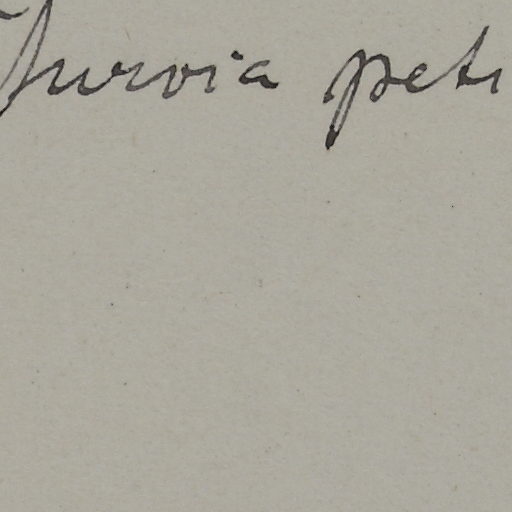 Jurvia peti